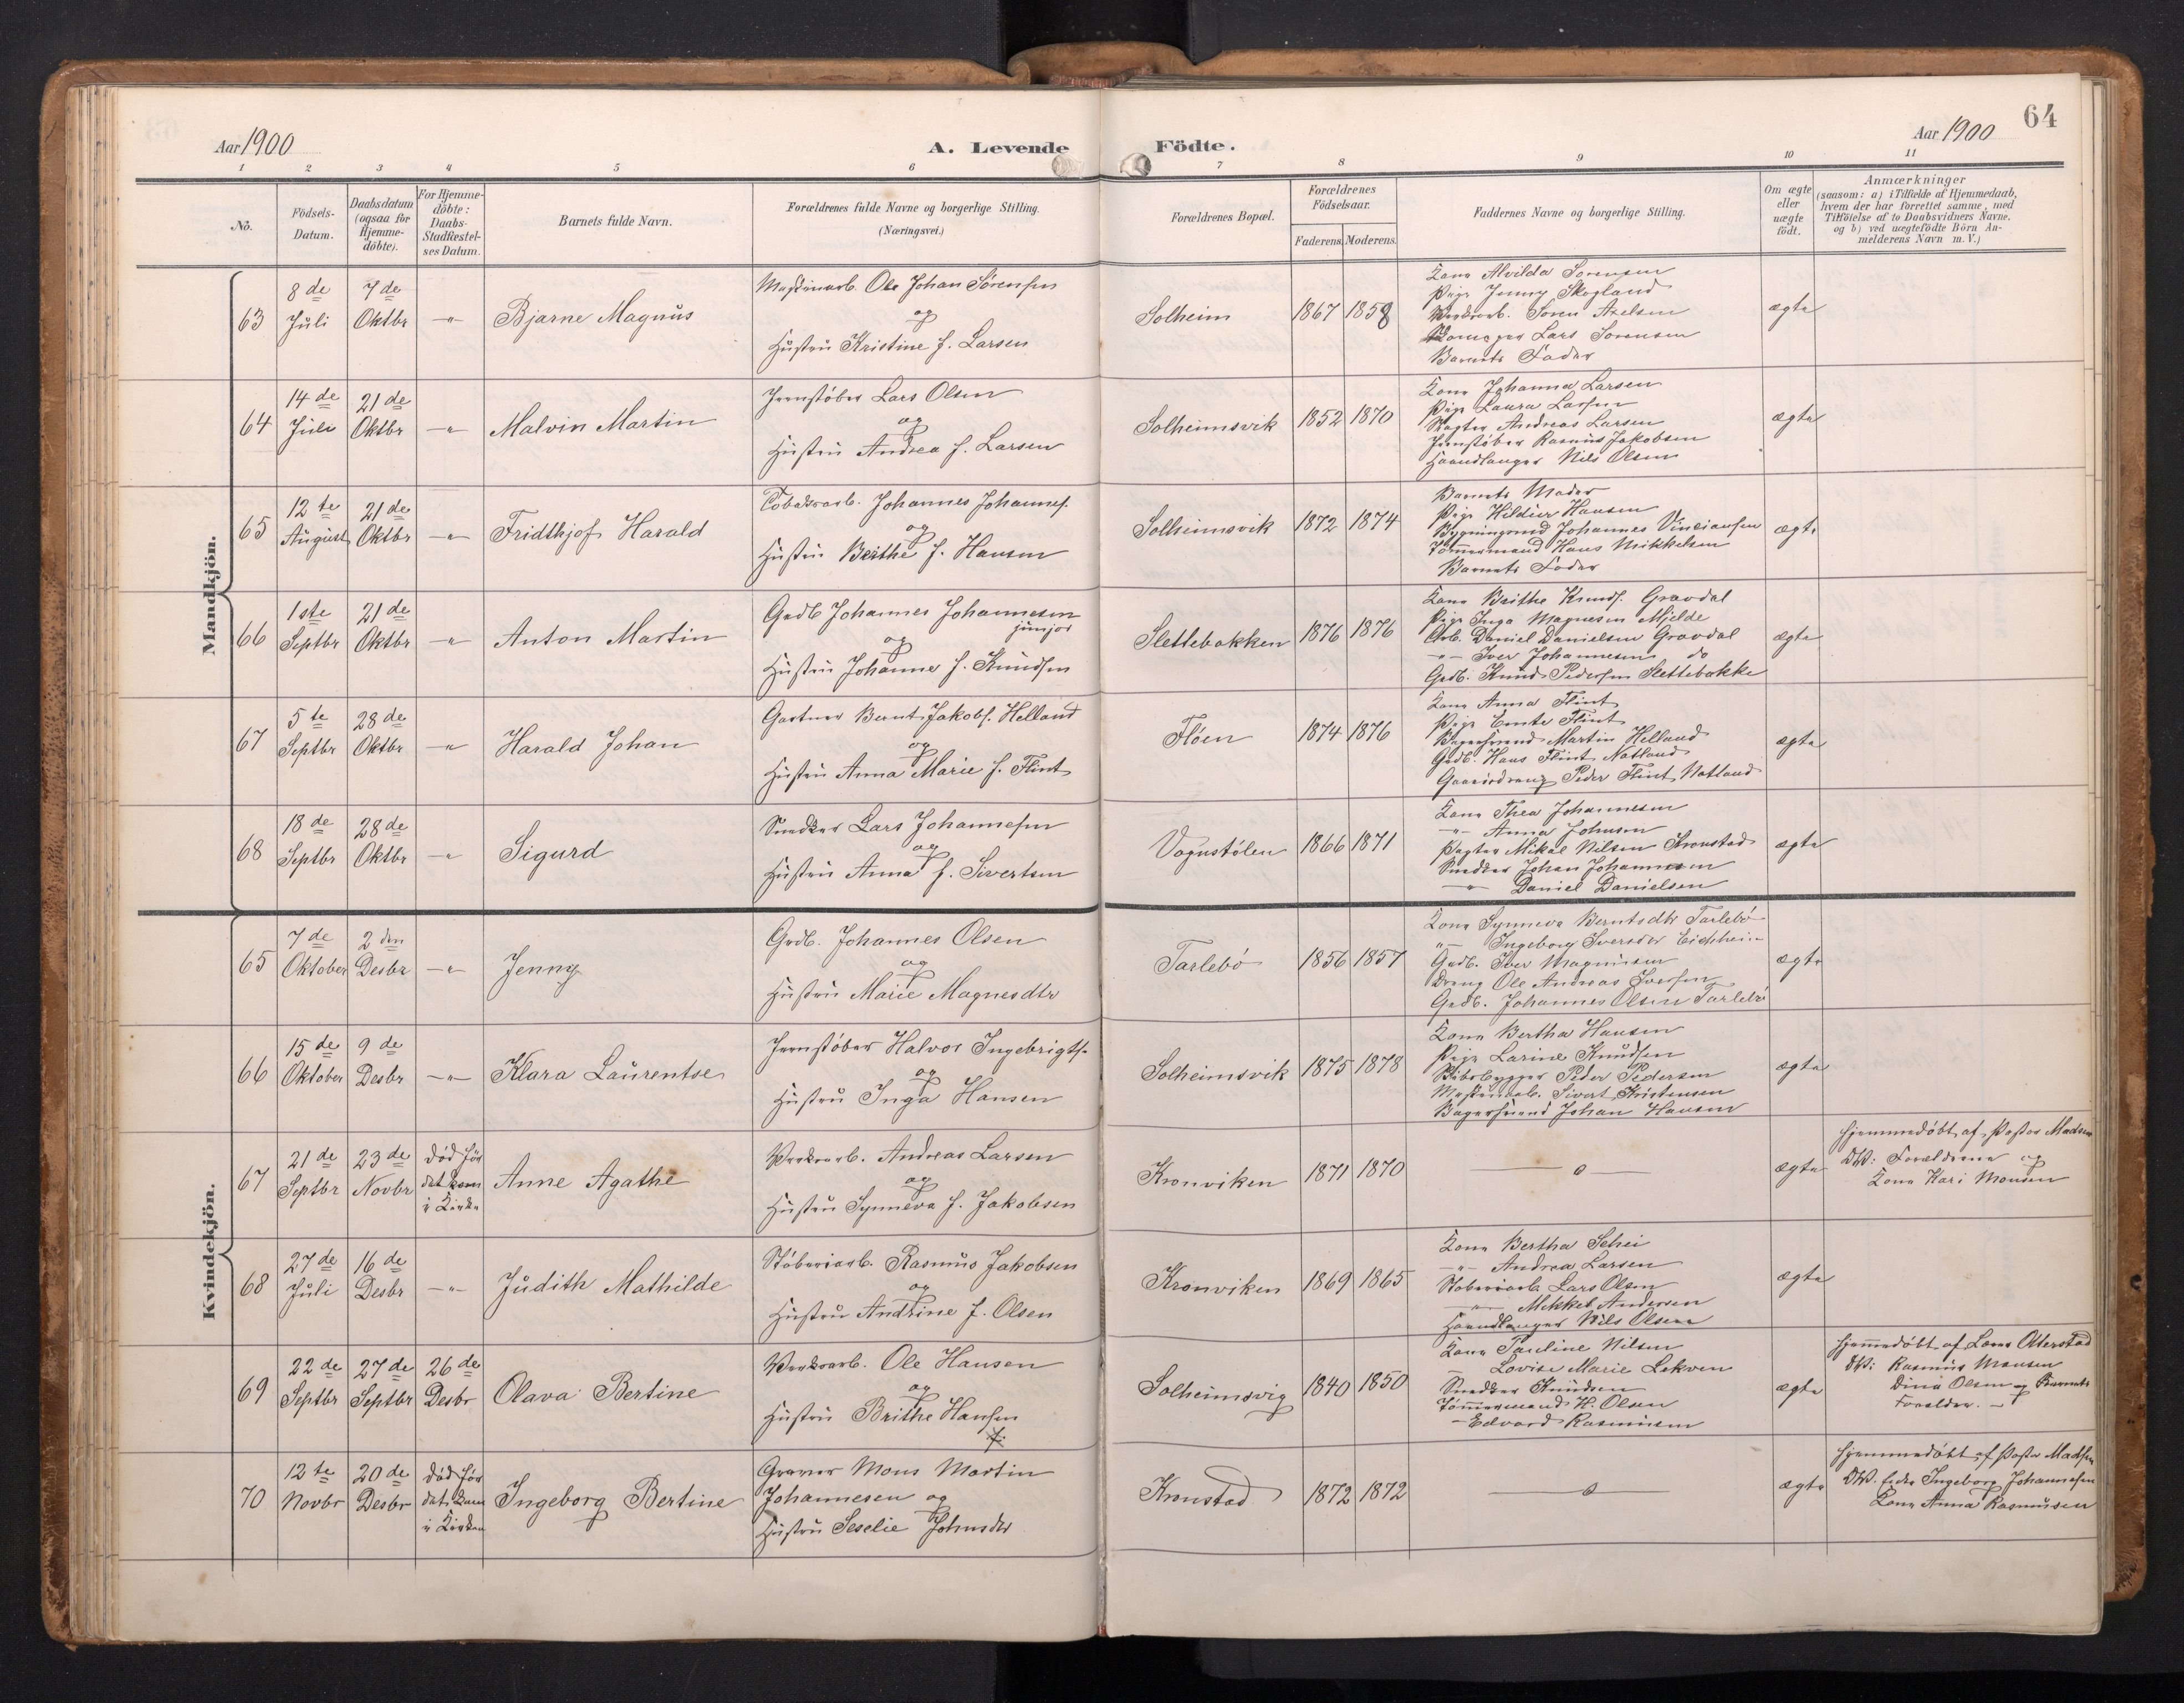 64
Aar 1900
A. Levende
Födte.
Aar 1900
1 2 3 4 5 6 7 8 9 10 11
No.
Födsels-
Datum.
Daabsdatum
(ogsaa for
Hjemme-
döbte).
For Hjemme-
döbte:
Daabs-
Stadfæstel-
ses Datum.
Barnets fulde Navn.
Forældrenes fulde Navne og borgerlige Stilling.
(Næringsvei.)
Forældrenes Bopæl.
Forældrenes
Födselsaar.
Faderens. Moderens.
Faddernes Navne og borgerlige Stilling.
Om ægte
eller
uægte
födt.
Anmærkninger
(saasom: a) i Tilfælde af Hjemmedaab,
hvem der har forrettet samme, med
Tilföielse af to Daabsvidners Navne.
og b) ved uægtefödte Börn An-
melderens Navn m. V.)
Mandkjön.
63
8de
Juli
7de
Oktbr
-"-
Bjarne Magnus
Maskinarb. Ole Johan Sørensen
og
Hustru Kristine f. Larsen
Solheim
1867 1858
Kone Alvilda Sorensen
Pige Jenny Skogland
Verksarb. Soren Axelsen
Lars Sorensen
Barnets Fader
ægte
64
14de
Juli
21de
Oktbr
-"-
Malvin Martin
Jernstøber Lars Olsen
og
Hustru Andrea f. Larsen
Solheimsvik
1852 1870
Kone Johanna Larsen
Pige Laura Larsen
Andreas Larsen
Jernstøber Rasmus Jakobsen
Haandlanger Nils Olsen
ægte
65
12te
August
21de
Oktbr
-"-
Fridthjof Harald
Tobaksarb. Johannes Johannes.
og
Hustru Berthe f. Hansen
Solheimsvik
1872 1874
Barnets Moder
Pige Hansen
Johannes
Tømmermand Hans Mikkelsen
Barnets Fader
ægte
66
1ste
Septbr
21de
Oktbr
-"-
Anton Martin
Grdb Johannes Johannesen
junior
og
Hustru Johanne f. Knudsen
Slettebakken
1876 1876
Kone Brithe Knuds. Gravdal
Pige Inga Magnesen Mjelde
Arb. Daniel Danielsen Gravdal
-"- Iver Johannesen do
Grdb. Knud Pedersen Slettebakke
ægte
67
5te
Septbr
28de
Oktbr
-"-
Harald Johan
Gartner Bernt Jakobs. Helland
og
Hustru Anna Marie f. Flint
Fløen
1874 1876
Kone Anna Flint
Pige Flint
Bagersvend Martin Helland
Grdb. Hans Flint Natland
Peder Flint Natland
ægte
68
18de
Septbr
28de
Oktbr
-"-
Sigurd
Snedker Lars Johannesen
og
Hustru Anna f. Sivertsen
Vognstølen
1866 1871
Kone Thea Johannesen
-"- Anna Johnsen
Pagter Mikal Nilsen Kronstad
Snedker Johan Johannesen
-"- Daniel Danielsen
ægte
Kvindekjön.
65
7de
Oktober
2den
Desbr
-"-
Jenny
Grdb. Johannes Olsen
og
Hustru Marie Magnesdtr
Tarlebø
1856 1857
Kone Synneva Berntsdtr Tarlebø
"- Ingeborg Iversdtr
Grdb. Iver Magnusen
Dreng Ole Andreas Iversen
Grdb. Johannes Olsen Tarlebø
ægte
66
15de
Oktober
9de
Desbr
-"-
Klara Laurentse
Jernstøber Halvor Ingebrigts.
og
Hustru Inga Hansen
Solheimsvik
1875 1878
Kone Bertha Hansen
Pige Larine Knudsen
Skibsbygger Peder Pedersen
Maskinarb. Sivert Kristensen
Bagersvend Johan Hansen
ægte
67
21de
Septbr
23de
Novbr
død før
det kom
i Kirke
Anne Agathe
Verksarb. Andreas Larsen
og
Hustru Synneva f. Jakobsen
Kronviken
1871 1870
—o—
ægte
Hjemmedøbt af Pastor Madsen
DW: Forældrene og
Kone Kari Monsen
68
27de
Juli
16de
Desbr
-"-
Judith Mathilde
Støberiarb. Rasmus Jakobsen
og
Hustru Andrine f. Olsen
Kronviken
1869 1865
Kone Bertha Schei
-"- Andrea Larsen
Støberiarb Lars Olsen
-"- Mikkel Andersen
Haandlanger Nils Olsen
ægte
69
22de
Septbr
27de
Septbr
26de
Desbr
Olava Bertine
Verksarb. Ole Hansen
og
Hustru Brithe Hansen
Solheimsvig
1840 1850
Kone Pauline Nilsen
Lovise Marie Lekven
Snedker Knudsen
Tømmermand H. Olsen
- Edvard Rasmusen
ægte
Hjemmedøbt af Otterstad
DW: Rasmus Monsen
Dina Olsen og Barnets
Forældre.
70
12te
Novbr
20de
Desbr
død før
det kom
i Kirken
Ingeborg Bertine
Graver Mons Martin
Johannesen og
Hustru Seselie Johnsdtr
Kronstad
1872 1872
—o—
ægte
Hjemmedøbt af Pastor Madsen
DW. Ingeborg Johannesen
Kone Anna Rasmusen